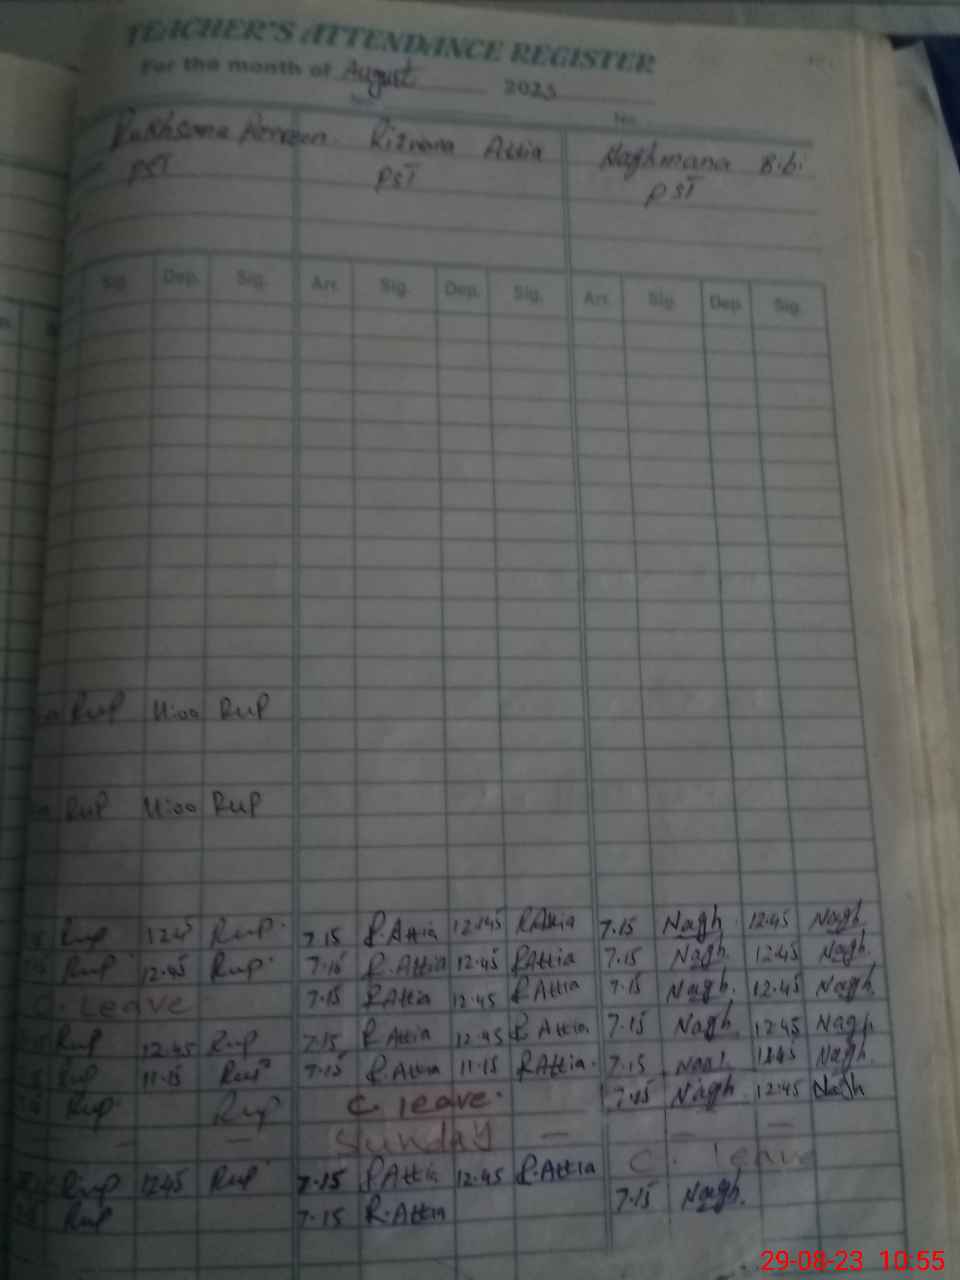 TEACHER'S ATTENDANCE REGISTER
For the month of August 2023
No.
Rukhsana Rizwana Attia Naghmana Bibi
PST PST PST
Sig. Dep. Sig. Arr. Sig. Dep. Sig. Arr. Sig. Dep. Sig.
RuP 11:00 RuP
RuP 11:00 RuP
Rup 1245 Rup. 7.15 R.Attia 12.45 RAttia 7.15 Nagh. 12.45 Nagh.
Rup 12.45 Rup. 7.15 R.Attia 12.45 RAttia 7.15 Nagh. 12.45 Nagh.
C. Leave 7.15 RAttia 12.45 R Attia 7.15 Nagh. 12.45 Nagh.
Rup 12.45 Rup 7.15 R Attia 12.45 R Attia. 7.15 Nagh. 12.45 Nagh.
Rup 11.15 Rup 7.15 R.Attia 11.15 RAttia. 7.15 Nagh.
Rup. Rup C leave. 7.15 Nagh. 12.45 Nagh
— — Sunday — — —
Rup 1245 Rup 7.15 RAttia 12.45 R.Attia C. leave
Rup 7.15 R.Attia 7.15 Nagh.
29-08-23 10:55